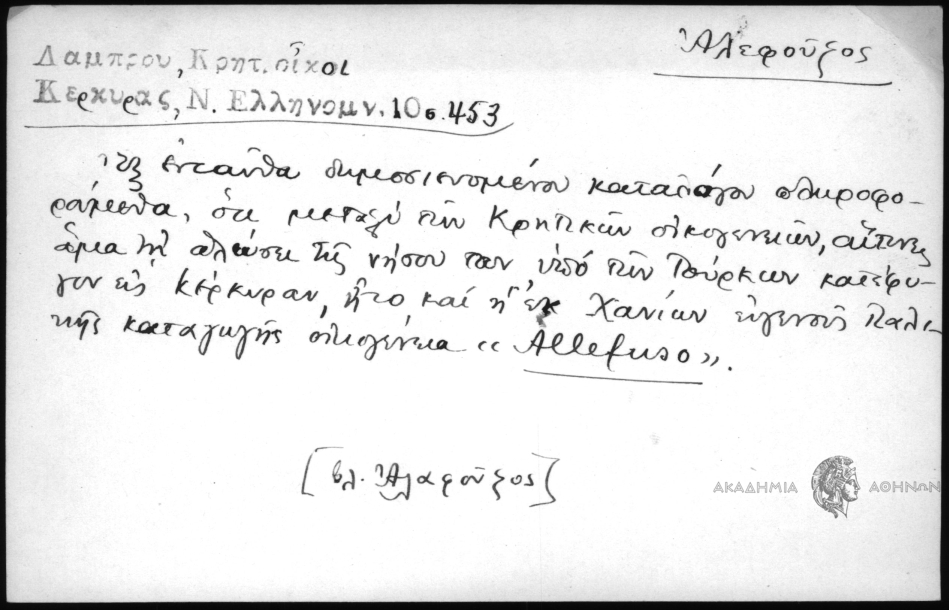 Ἀλεφοῦζος
Λαμπρου, Κρητ. οἶκοι
Κερκυρας, Ν. Ελληνομν. 10 σ. 453
Ἐξ ἐνταῦθα δημοσιευομένου καταλόγου πληροφο-
ρούμεθα, ὅτι μεταξὺ τῶν Κρητικῶν οἰκογενειῶν, αἵτινες
ἅμα τῇ ἁλώσει τῆς νήσου των ὑπὸ τῶν Τούρκων κατέφυ-
γον εἰς Κέρκυραν, ἦτο καὶ ἡ ἐκ Χανίων εὐγενοῦς Ἰταλι-
κῆς καταγωγῆς οἰκογένεια « Allefuso ».
[βλ. Ἀλαφοῦζος]
ΑΚΑΔΗΜΙΑ ΑΘΗΝΩΝ